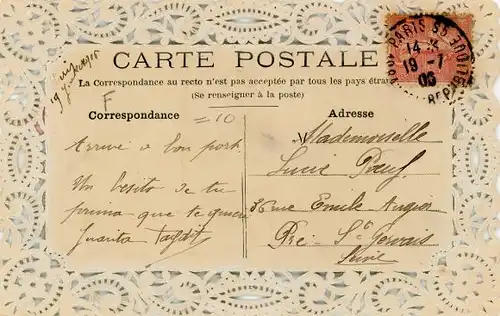 CARTE POSTALE
La Correspondance au recto n'est pas acceptée par tous les pays étran
(Se renseigner à la poste)
Correspondance
Adresse
F
=10
Arrivé a bon port
Un besito de tu
prima que te quiere
Juanita
Mademoiselle
Lucie
36 rue Emile Augier
Pré-St Gervais
Seine
PARIS
14
19-7
05